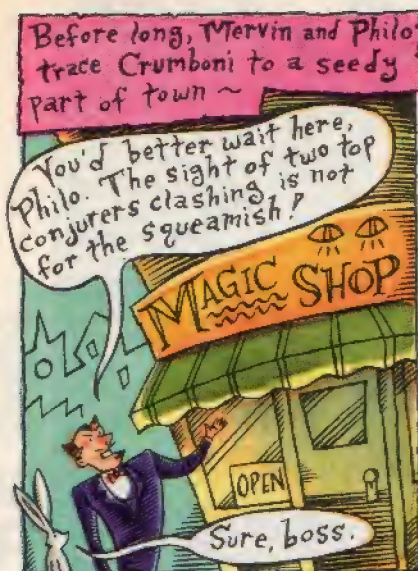 Before long, Mervin and Philo
trace Crumboni to a seedy
part of town ~
You'd better wait here,
Philo. The sight of two top
conjurers clashing is not
for the squeamish!
MAGIC SHOP
OPEN
Sure, boss.